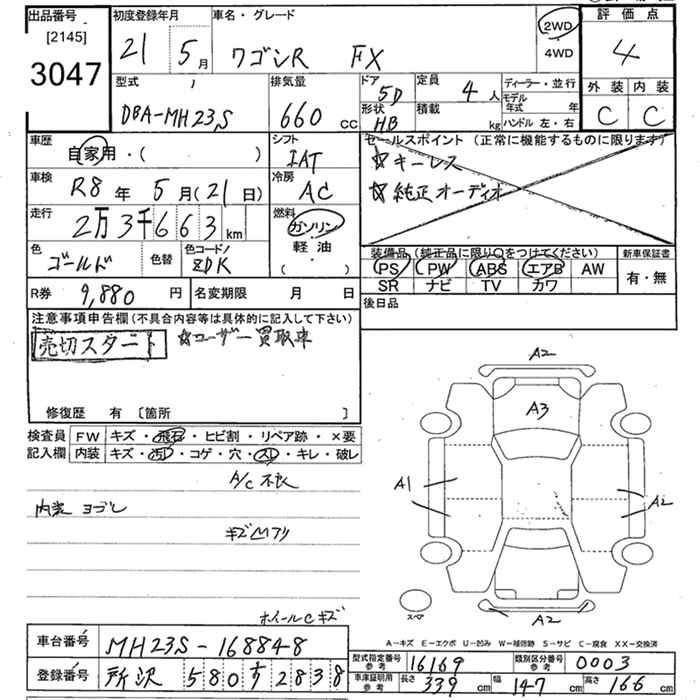 出品番号 初度登録年月 車名・グレード 評価点
[2145] 21年 5月 ワゴンR FX 2WD 4
3047 4WD
型式 排気量 ドア 定員 ディーラー・並行 外装 内装
DBA-MH23S 660cc 5D 4人 モデル年式 年 C C
形状 積載 ハンドル 左・右
HB kg
車歴 シフト セールスポイント (正常に機能するものに限ります)
自家用・( ) IAT ☆キーレス
車検 冷房 ☆純正オーディオ
R8年 5月(21日) AC
走行 燃料
2万3千663km ガソリン
軽油
・( )
色 色替 色コードノ 装備品 (純正品に限り○をつけてください) 新車保証書
ゴールド ZDK PS PW ABS エアB AW 有・無
SR ナビ TV カワ
R券 9,880円 名変期限 月 日 後日品
注意事項申告欄(不具合内容等は具体的に記入して下さい)
売切スタート ☆ユーザー買取車
修復歴 有 [箇所 ]
検査員 FW キズ・飛石・ヒビ割・リペア跡・×要
記入欄 内装 キズ・汚レ・コゲ・穴・スレ・キレ・破レ
A/C 不良
内装 ヨゴレ
ホイールCキズ
A2
A3
A1
A2
A2
スペア
A−キズ E−エクボ U−凹み W−補修跡 S−サビ C−腐食 XX−交換済
車台番号 MH23S-168848 型式指定番号 参考 16169 類別区分番号 参考 0003
登録番号 所沢 580す2838 車庫証明用 参考 長さ 339cm 幅 147cm 高さ 166cm